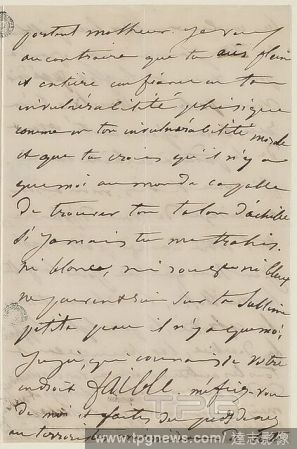 portant malheur. Je veux
au contraire que tu aies plein
et entière confiance en ton
invulnérabilité phisique
comme en ton invulnérabilité morale
et que tu croies qu'il n'y a
que moi au monde capable
de trouver ton talon d'achille
si jamais tu me trahis.
ni blancs, ni rouges ni bleus
ne peuvent rien sur ta sublime
petite peau il n'y a que moi
Juju, qui connaisse votre
endroit faible, méfiez-vous
de moi et faites
TPG
www.tpgnews.com / 達志影像